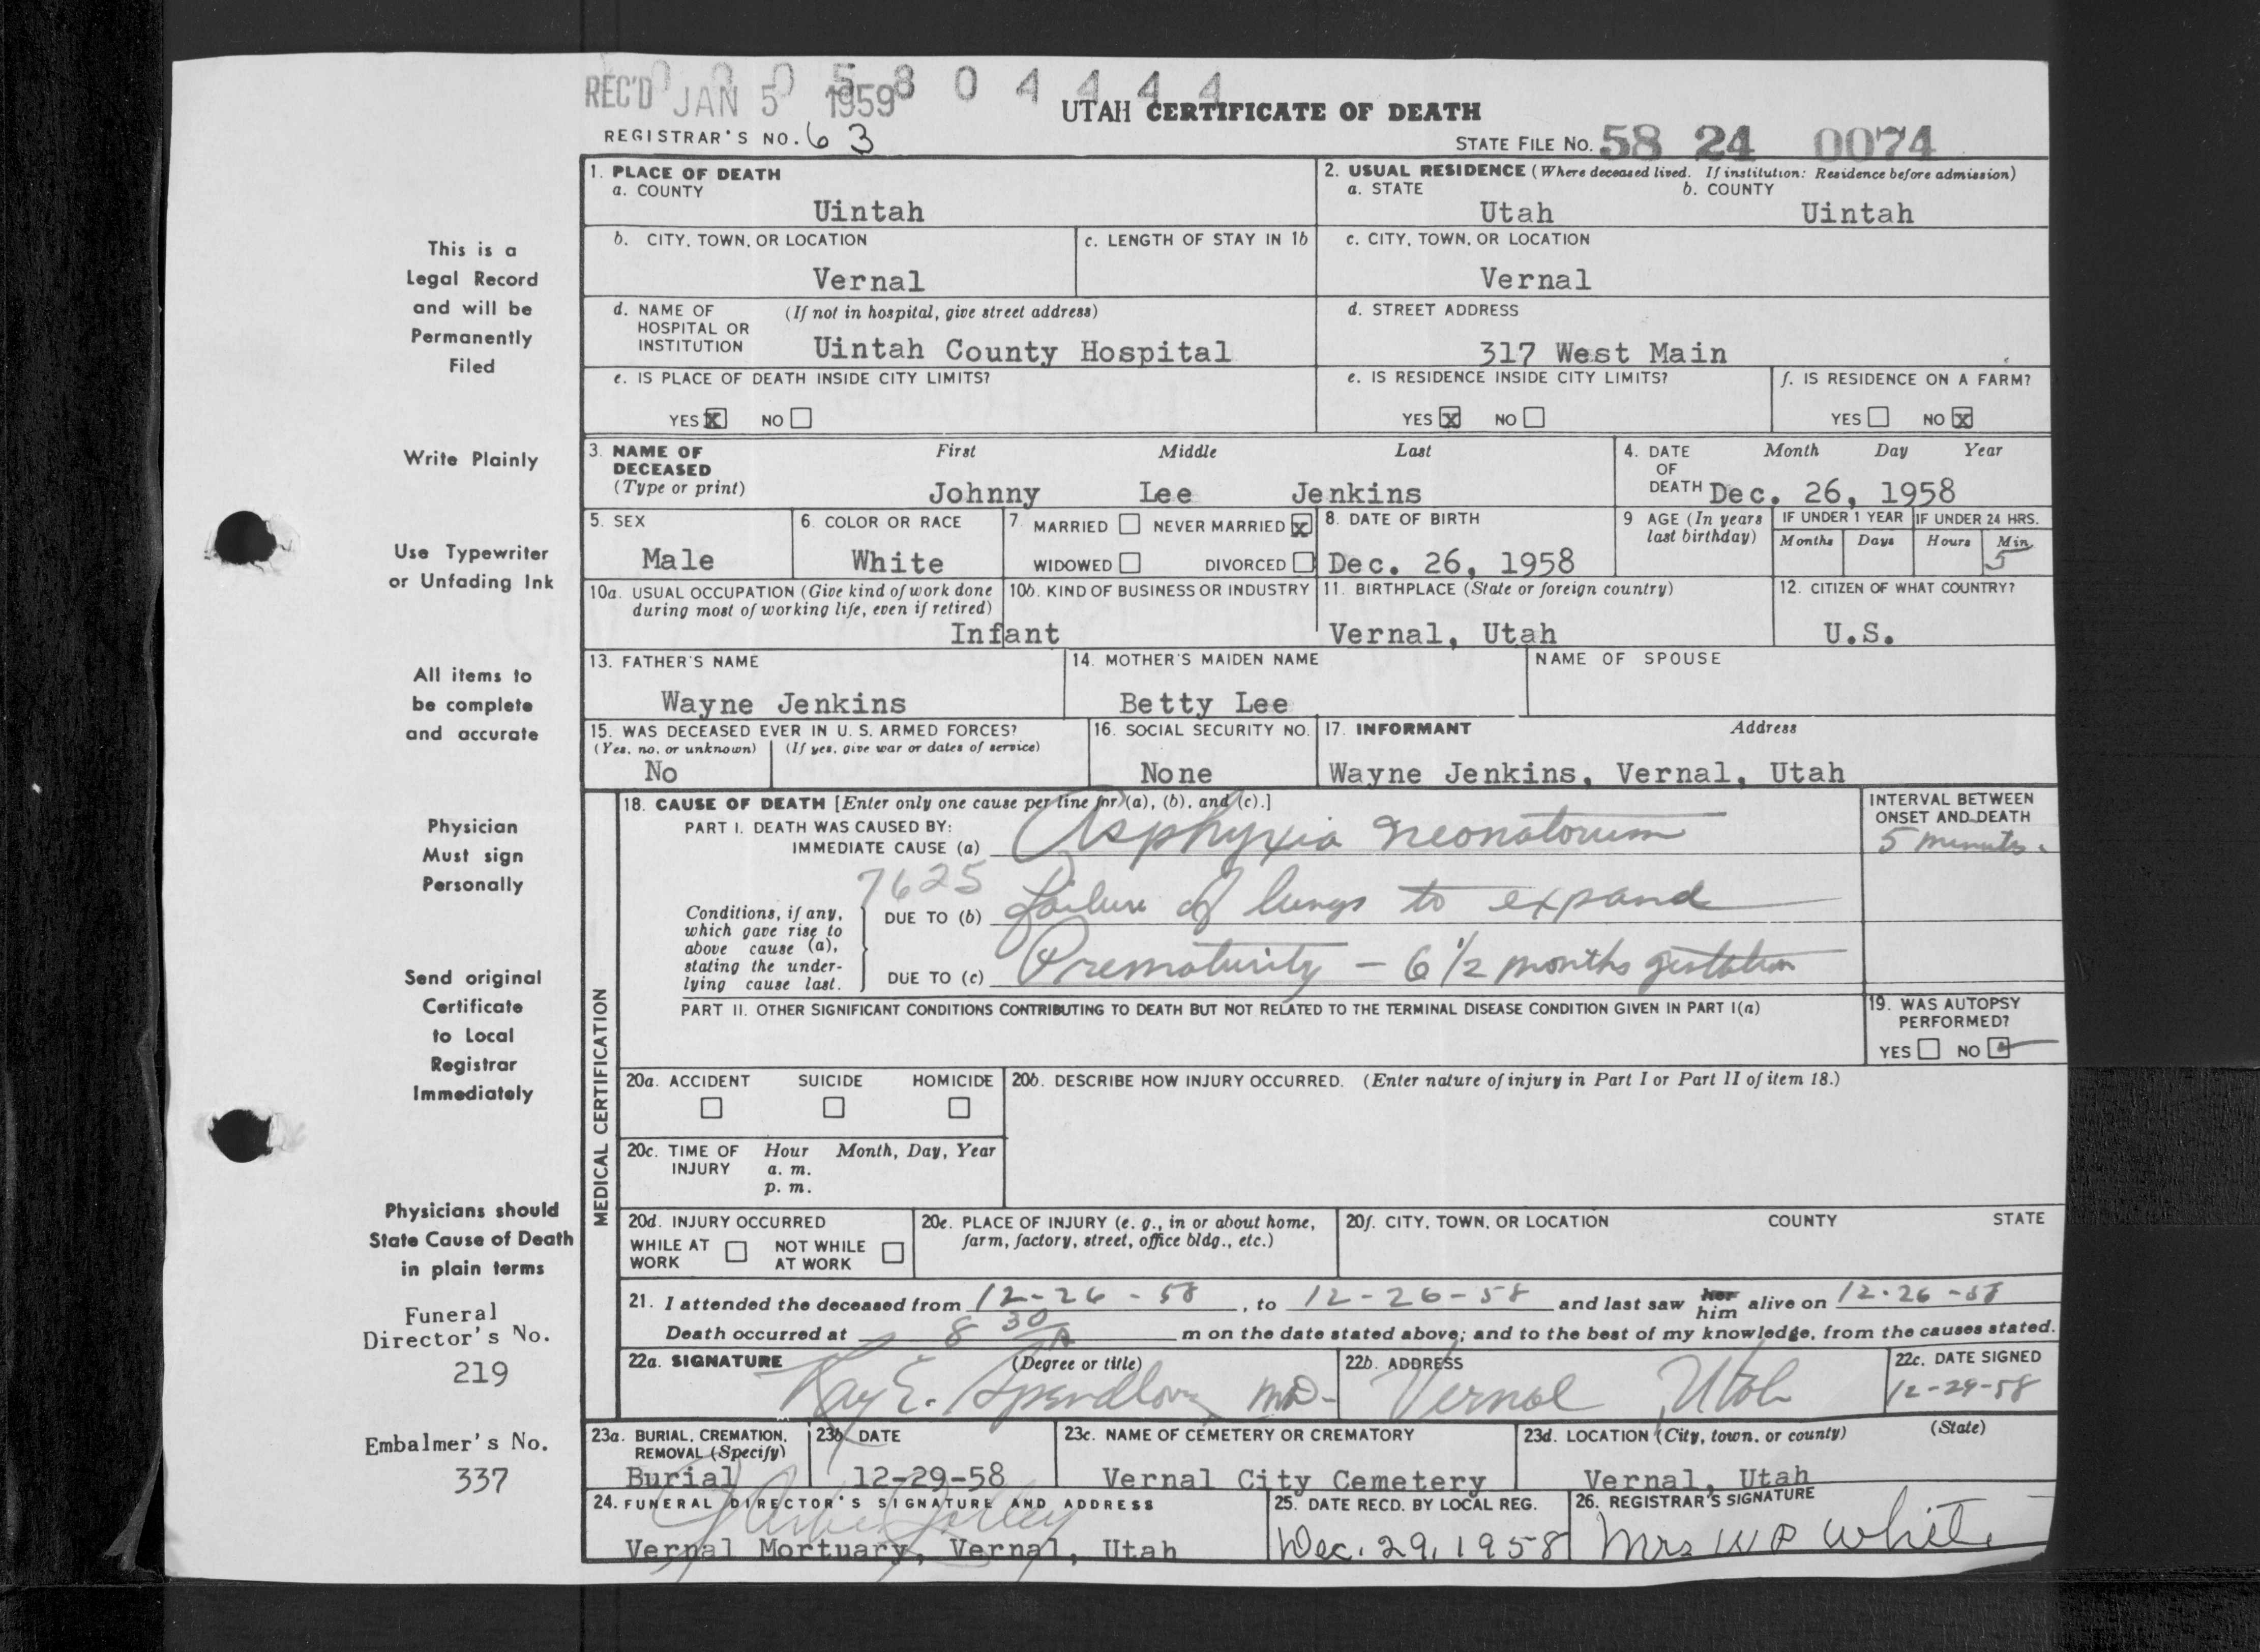 0 0 0 5 8 0 4 4 4 4
REC'D JAN 5 1959
UTAH CERTIFICATE OF DEATH
REGISTRAR'S NO. 63
STATE FILE NO. 58 24 0074
1. PLACE OF DEATH
a. COUNTY
Uintah
2. USUAL RESIDENCE (Where deceased lived. If institution: Residence before admission)
a. STATE b. COUNTY
Utah Uintah
b. CITY, TOWN, OR LOCATION
Vernal
c. LENGTH OF STAY IN 1b
c. CITY, TOWN, OR LOCATION
Vernal
d. NAME OF HOSPITAL OR INSTITUTION (If not in hospital, give street address)
Uintah County Hospital
d. STREET ADDRESS
317 West Main
e. IS PLACE OF DEATH INSIDE CITY LIMITS?
YES X NO
e. IS RESIDENCE INSIDE CITY LIMITS?
YES X NO
f. IS RESIDENCE ON A FARM?
YES NO X
3. NAME OF DECEASED (Type or print)
First Middle Last
Johnny Lee Jenkins
4. DATE OF DEATH Month Day Year
Dec. 26, 1958
5. SEX
Male
6. COLOR OR RACE
White
7. MARRIED NEVER MARRIED X
WIDOWED DIVORCED
8. DATE OF BIRTH
Dec. 26, 1958
9 AGE (In years last birthday)
IF UNDER 1 YEAR
Months Days
IF UNDER 24 HRS.
Hours Min.
5
10a. USUAL OCCUPATION (Give kind of work done during most of working life, even if retired)
10b. KIND OF BUSINESS OR INDUSTRY
Infant
11. BIRTHPLACE (State or foreign country)
Vernal, Utah
12. CITIZEN OF WHAT COUNTRY?
U.S.
13. FATHER'S NAME
Wayne Jenkins
14. MOTHER'S MAIDEN NAME
Betty Lee
NAME OF SPOUSE
15. WAS DECEASED EVER IN U. S. ARMED FORCES?
(Yes, no, or unknown) (If yes, give war or dates of service)
No
16. SOCIAL SECURITY NO.
None
17. INFORMANT Address
Wayne Jenkins, Vernal, Utah
MEDICAL CERTIFICATION
18. CAUSE OF DEATH [Enter only one cause per line for (a), (b), and (c).]
PART I. DEATH WAS CAUSED BY:
IMMEDIATE CAUSE (a) Asphyxia Neonatorum
INTERVAL BETWEEN ONSET AND DEATH
5 minutes.
7625
Conditions, if any, which gave rise to above cause (a), stating the underlying cause last.
DUE TO (b) failure of lungs to expand
DUE TO (c) Prematurity - 6 1/2 months gestation
PART II. OTHER SIGNIFICANT CONDITIONS CONTRIBUTING TO DEATH BUT NOT RELATED TO THE TERMINAL DISEASE CONDITION GIVEN IN PART I(a)
19. WAS AUTOPSY PERFORMED?
YES NO
20a. ACCIDENT SUICIDE HOMICIDE
20b. DESCRIBE HOW INJURY OCCURRED. (Enter nature of injury in Part I or Part II of item 18.)
20c. TIME OF INJURY Hour Month, Day, Year
a. m.
p. m.
20d. INJURY OCCURRED
WHILE AT WORK NOT WHILE AT WORK
20e. PLACE OF INJURY (e. g., in or about home, farm, factory, street, office bldg., etc.)
20f. CITY, TOWN, OR LOCATION COUNTY STATE
21. I attended the deceased from 12-26-58, to 12-26-58 and last saw her him alive on 12-26-58
Death occurred at 8 30 A m on the date stated above; and to the best of my knowledge, from the causes stated.
22a. SIGNATURE (Degree or title)
Ray E. Spendlove MD-
22b. ADDRESS
Vernal, Utah
22c. DATE SIGNED
12-29-58
23a. BURIAL, CREMATION, REMOVAL (Specify)
Burial
23b. DATE
12-29-58
23c. NAME OF CEMETERY OR CREMATORY
Vernal City Cemetery
23d. LOCATION (City, town, or county) (State)
Vernal, Utah
24. FUNERAL DIRECTOR'S SIGNATURE AND ADDRESS
Vernal Mortuary, Vernal, Utah
25. DATE RECD. BY LOCAL REG.
Dec. 29, 1958
26. REGISTRAR'S SIGNATURE
Mrs W P White
This is a
Legal Record
and will be
Permanently
Filed
Write Plainly
Use Typewriter
or Unfading Ink
All items to
be complete
and accurate
Physician
Must sign
Personally
Send original
Certificate
to Local
Registrar
Immediately
Physicians should
State Cause of Death
in plain terms
Funeral
Director's No.
219
Embalmer's No.
337